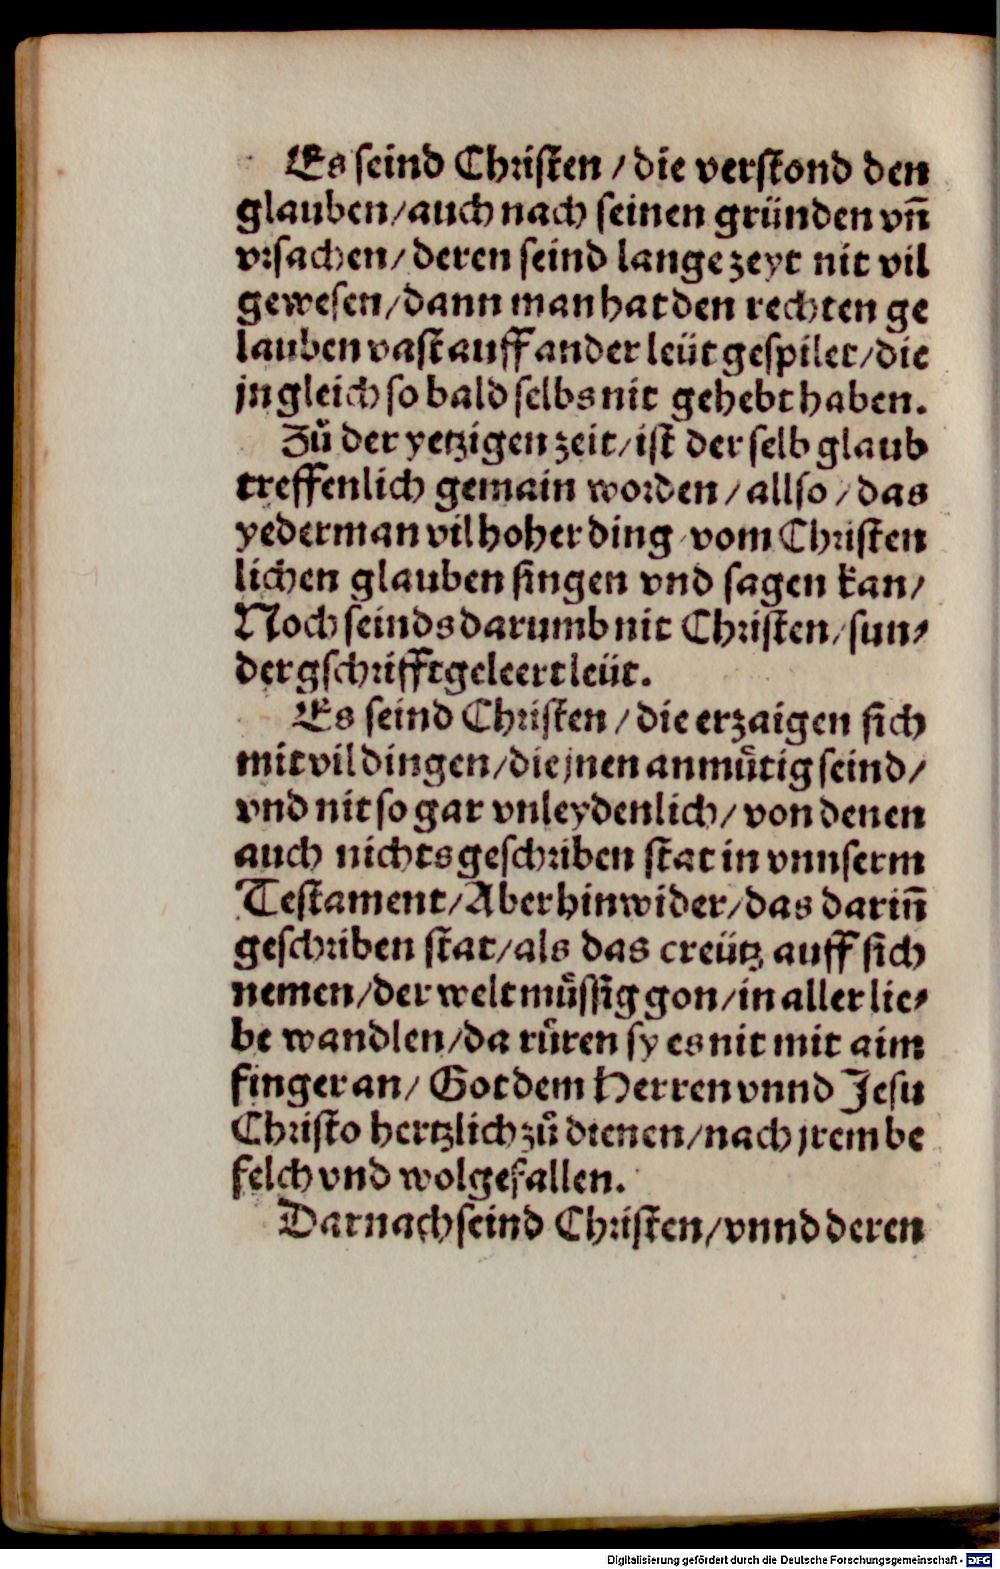 Es seind Christen / die verstond den
glauben / auch nach seinen gründen vn̄
vrsachen / deren seind lange zeyt nit vil
gewesen / dann man hat den rechten ge
lauben vast auff ander leüt gespilet / die
jn gleich so bald selbs nit gehebt haben.
Zů der yetzigen zeit / ist der selb glaub
treffenlich gemain worden / allso / das
yederman vil hoher ding vom Christen
lichen glauben singen vnd sagen kan /
Noch seinds darumb nit Christen / sun⸗
der gschrifftgeleert leüt.
Es seind Christen / die erzaigen sich
mit vil dingen / die jnen anmůtig seind /
vnd nit so gar vnleydenlich / von denen
auch nichts geschriben stat in vnnserm
Testament / Aber hinwider / das darin̄
geschriben stat / als das creütz auff sich
nemen / der welt můssig gon / in aller lie⸗
be wandlen / da růren sy es nit mit aim
finger an / Got dem Herren vnnd Jesu
Christo hertzlich zů dienen / nach jrem be
felch vnd wolgefallen.
Darnach seind Christen / vnnd deren
Digitalisierung gefördert durch die Deutsche Forschungsgemeinschaft - DFG